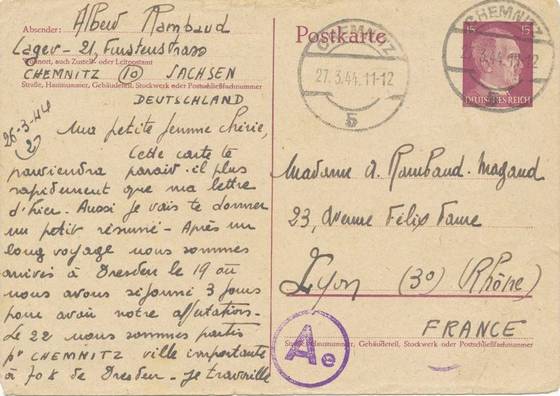 Absender: Albert Rambaud
Lager - 21, Furstenstrass
Wohnort, auch Zustell- oder Leitpostamt
CHEMNITZ (10) SACHSEN
Straße, Hausnummer, Gebäudeteil, Stockwerk oder Postschließfachnummer
DEUTSCHLAND
26-3-44
2)
Ma petite femme chérie,
Cette carte te
parviendra parait-il plus
rapidement que ma lettre
d'hier. Aussi je vais te donner
un petit résumé - Après un
long voyage nous sommes
arrivés à Dresden le 19 où
nous avons séjourné 3 jours
pour avoir notre affectation -
Le 22 nous sommes partis
pr CHEMNITZ ville importante
à 70k de Dresden - je travaille
Postkarte
CHEMNITZ
27.3.44.11-12
5
CHEMNITZ
3.44.11-12
5
15 15
DEUTSCHES REICH
Madame A. Rambaud-Magand
23, Avenue Félix Faure
Lyon (3e) (Rhône)
FRANCE
Straße, Hausnummer, Gebäudeteil, Stockwerk oder Postschließfachnummer
Ae